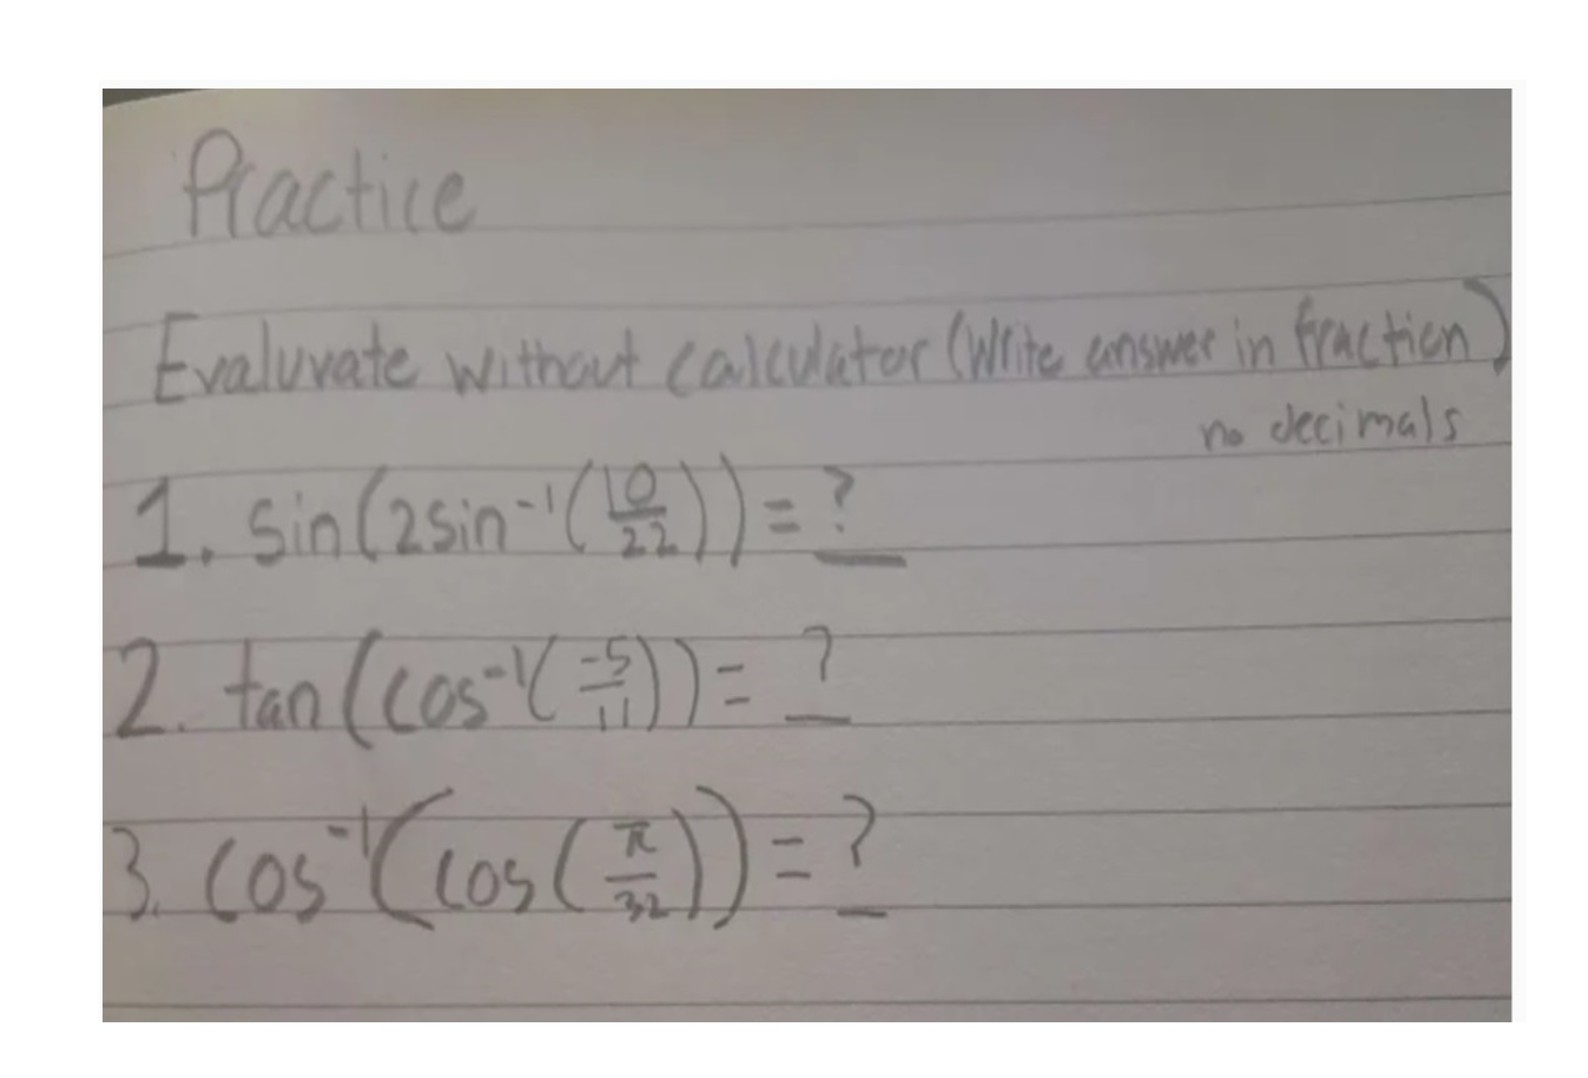 Practice
Evaluvate without calculator (Write answer in fraction)
no decimals
1. sin(2sin⁻¹(10/22)) = ?
2. tan(cos⁻¹(-5/11)) = ?
3. cos⁻¹(cos(π/32)) = ?